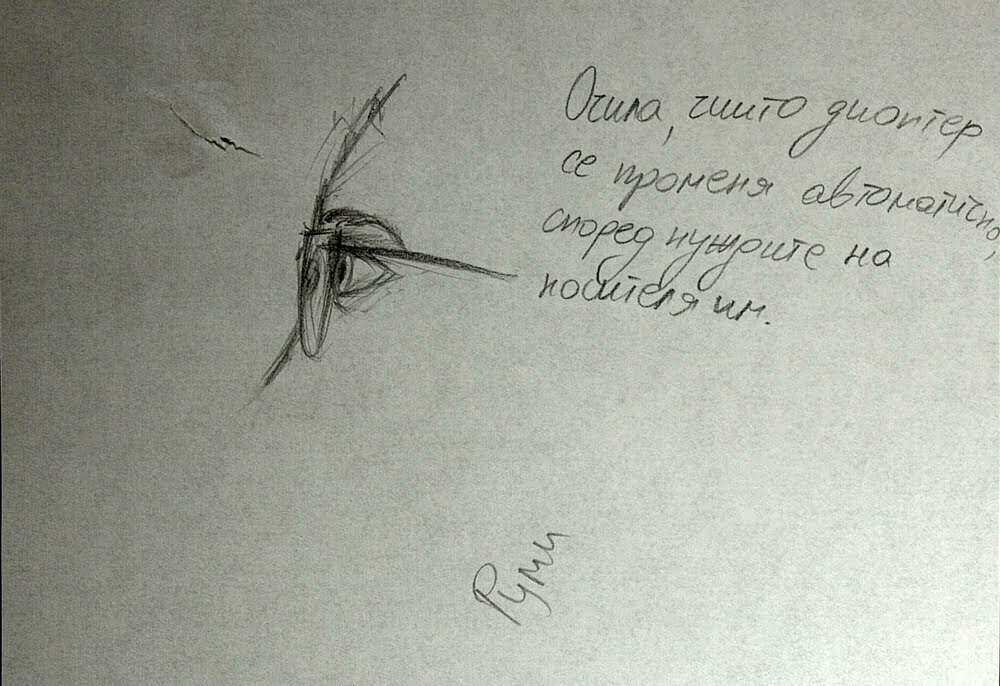 Очила, чиито диоптер
се променя автоматично,
според нуждите на
носителя им.
Руми